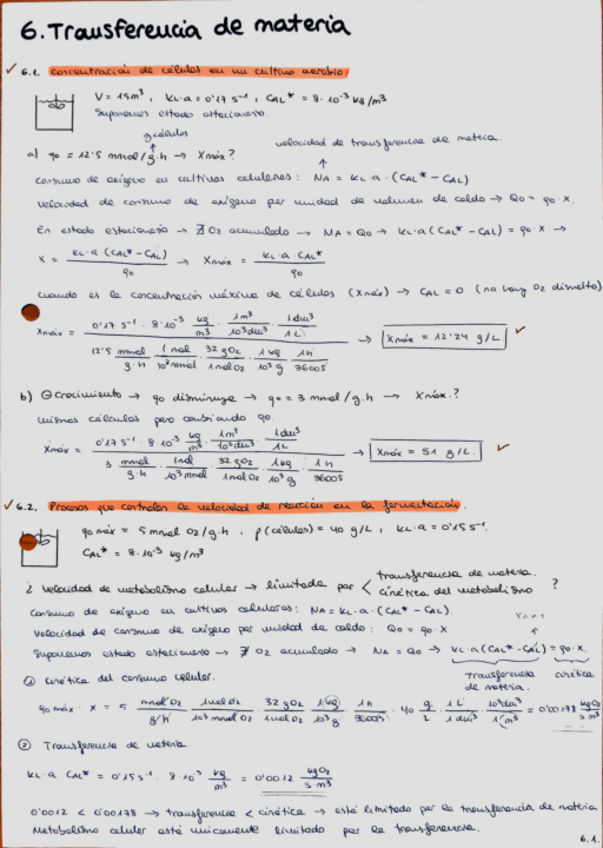 6. Transferencia de materia
✓ 6.1. Concentración de células en un cultivo aerobio
V = 15m³, kL·a = 0'17 s⁻¹, CAL* = 8·10⁻³ kg/m³
Suponemos estado estacionario.
g células
velocidad de transferencia de materia.
a) qo = 12'5 mmol/g·h → Xmáx?
Consumo de oxígeno en cultivos celulares: NA = kL·a·(CAL* - CAL)
Velocidad de consumo de oxígeno por unidad de volumen de caldo → Qo = qo·X.
En estado estacionario → ∄ O2 acumulado → NA = Qo → kL·a(CAL* - CAL) = qo·X →
X = kL·a·(CAL* - CAL) / qo → Xmáx = kL·a·CAL* / qo
cuando es la concentración máxima de células (Xmáx) → CAL = 0 (no hay O2 disuelto)
Xmáx = 0'17 s⁻¹ · 8·10⁻³ kg/m³ · 1m³/10³dm³ · 1dm³/1L / 12'5 mmol/g·h · 1mol/10³mmol · 32gO2/1molO2 · 1kg/10³g · 1h/3600s → Xmáx = 12'24 g/L ✓
b) ⊖crecimiento → qo disminuye → qo = 3 mmol/g·h → Xmáx?
mismos cálculos pero cambiando qo.
Xmáx = 0'17 s⁻¹ · 8·10⁻³ kg/m³ · 1m³/10³dm³ · 1dm³/1L / 3 mmol/g·h · 1mol/10³mmol · 32gO2/1molO2 · 1kg/10³g · 1h/3600s → Xmáx = 51 g/L. ✓
✓ 6.2. Procesos que controlan la velocidad de reacción en la fermentación.
qo máx = 5 mmol O2/g·h, ρ(células) = 40 g/L, kL·a = 0'15 s⁻¹.
CAL* = 8·10⁻³ kg/m³
¿ Velocidad de metabolismo celular → limitada por < transferencia de materia. cinética del metabolismo ?
Consumo de oxígeno en cultivos celulares: NA = kL·a·(CAL* - CAL)
Velocidad de consumo de oxígeno por unidad de caldo: Qo = qo·X
Suponemos estado estacionario → ∄ O2 acumulado → NA = Qo → kL·a(CAL* - CAL) = qo·X.
transferencia de materia. cinética
① Cinética del consumo celular.
qo máx · X = 5 mmol O2/g·h · 1molO2/10³ mmol O2 · 32gO2/1molO2 · 1kg/10³g · 1h/3600s · 40 g/L · 1L/1dm³ · 10³dm³/1m³ = 0'00178 kgO2/s·m³
② Transferencia de materia.
kL·a CAL* = 0'15 s⁻¹ · 8·10⁻³ kg/m³ = 0'0012 kgO2/s·m³
0'0012 < 0'00178 → transferencia < cinética → está limitado por la transferencia de materia
Metabolismo celular está unicamente limitado por la transferencia.
6.1.